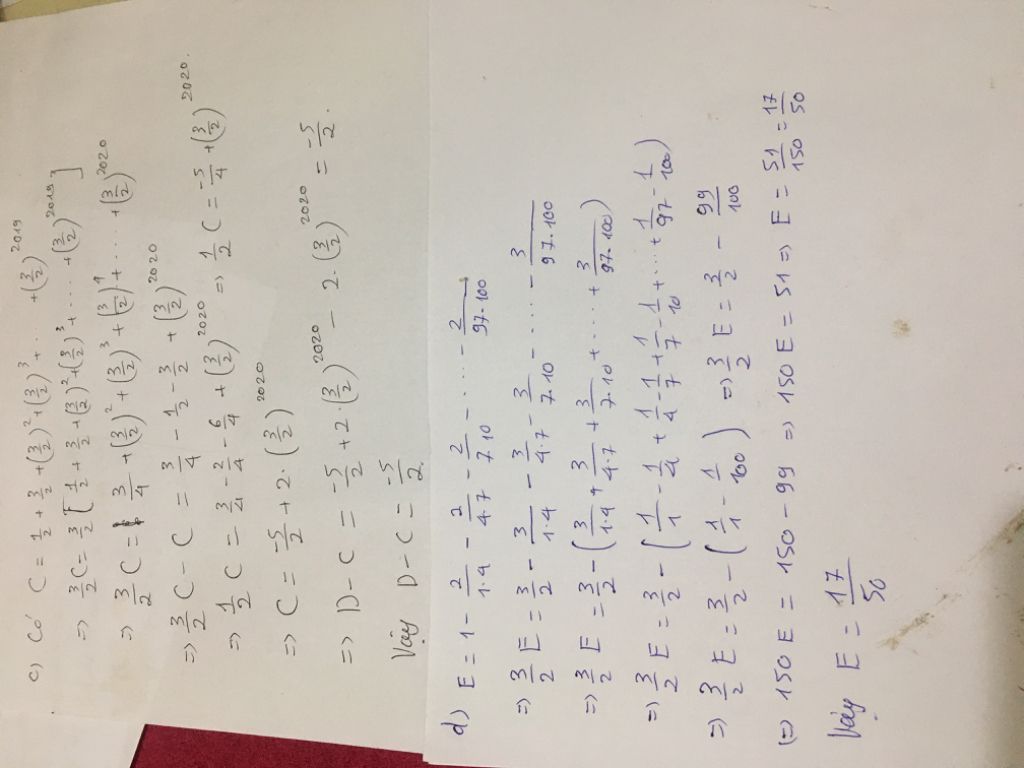 c) Có C = 1/2 + 3/2 + (3/2)^2 + (3/2)^3 + ... + (3/2)^2019
=> 3/2 C = 3/2 [1/2 + 3/2 + (3/2)^2 + (3/2)^3 + ..... + (3/2)^2019]
=> 3/2 C = 3/4 + (3/2)^2 + (3/2)^3 + (3/2)^4 + ..... + (3/2)^2020
=> 3/2 C - C = 3/4 - 1/2 - 3/2 + (3/2)^2020
=> 1/2 C = 3/4 - 2/4 - 6/4 + (3/2)^2020 => 1/2 C = -5/4 + (3/2)^2020
=> C = -5/2 + 2. (3/2)^2020
=> D - C = -5/2 + 2.(3/2)^2020 - 2.(3/2)^2020 = -5/2.
Vậy D - C = -5/2.
d) E = 1 - 2/1.4 - 2/4.7 - 2/7.10 - .... - 2/97.100
=> 3/2 E = 3/2 - 3/1.4 - 3/4.7 - 3/7.10 - .... - 3/97.100
=> 3/2 E = 3/2 - (3/1.4 + 3/4.7 + 3/7.10 + .... + 3/97.100)
=> 3/2 E = 3/2 - (1/1 - 1/4 + 1/4 - 1/7 + 1/7 - 1/10 + .... + 1/97 - 1/100)
=> 3/2 E = 3/2 - (1/1 - 1/100) => 3/2 E = 3/2 - 99/100
(=) 150 E = 150 - 99 => 150 E = 51 => E = 51/150 = 17/50
Vậy E = 17/50